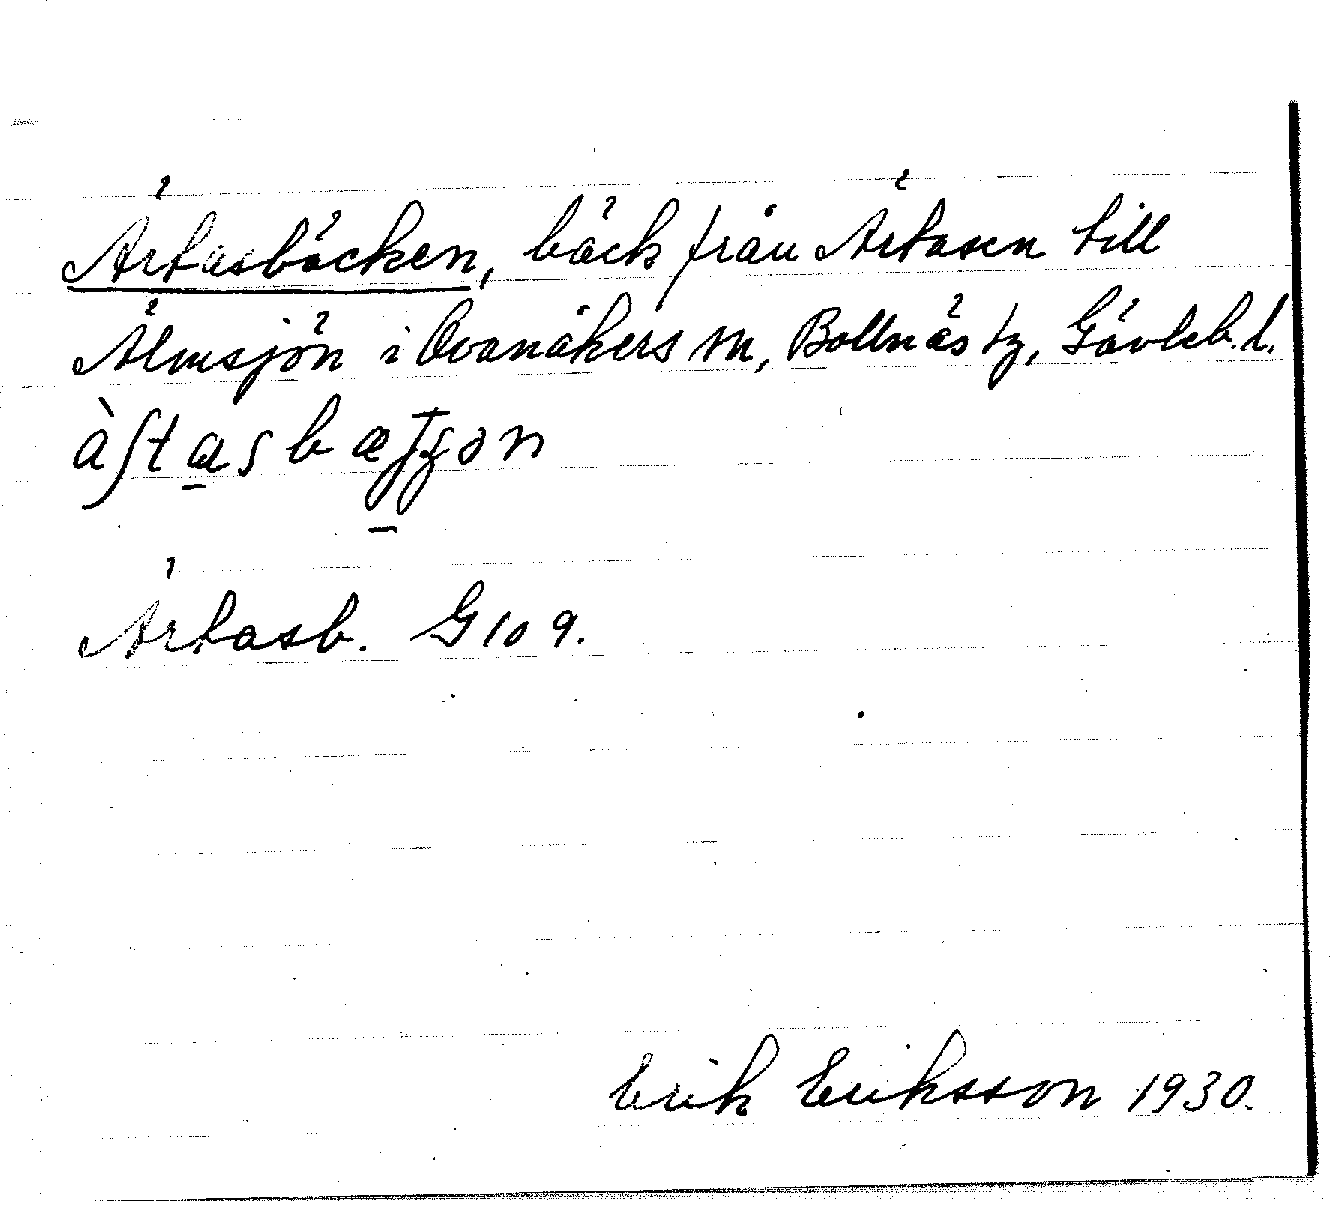 Ärtasbäcken, bäck från Ärtasen till
Älmsjön i Ovanåkers sn, Bollnäs tg, Gävleb. l.
Ärtasb. G 109.
Erik Eriksson 1930.